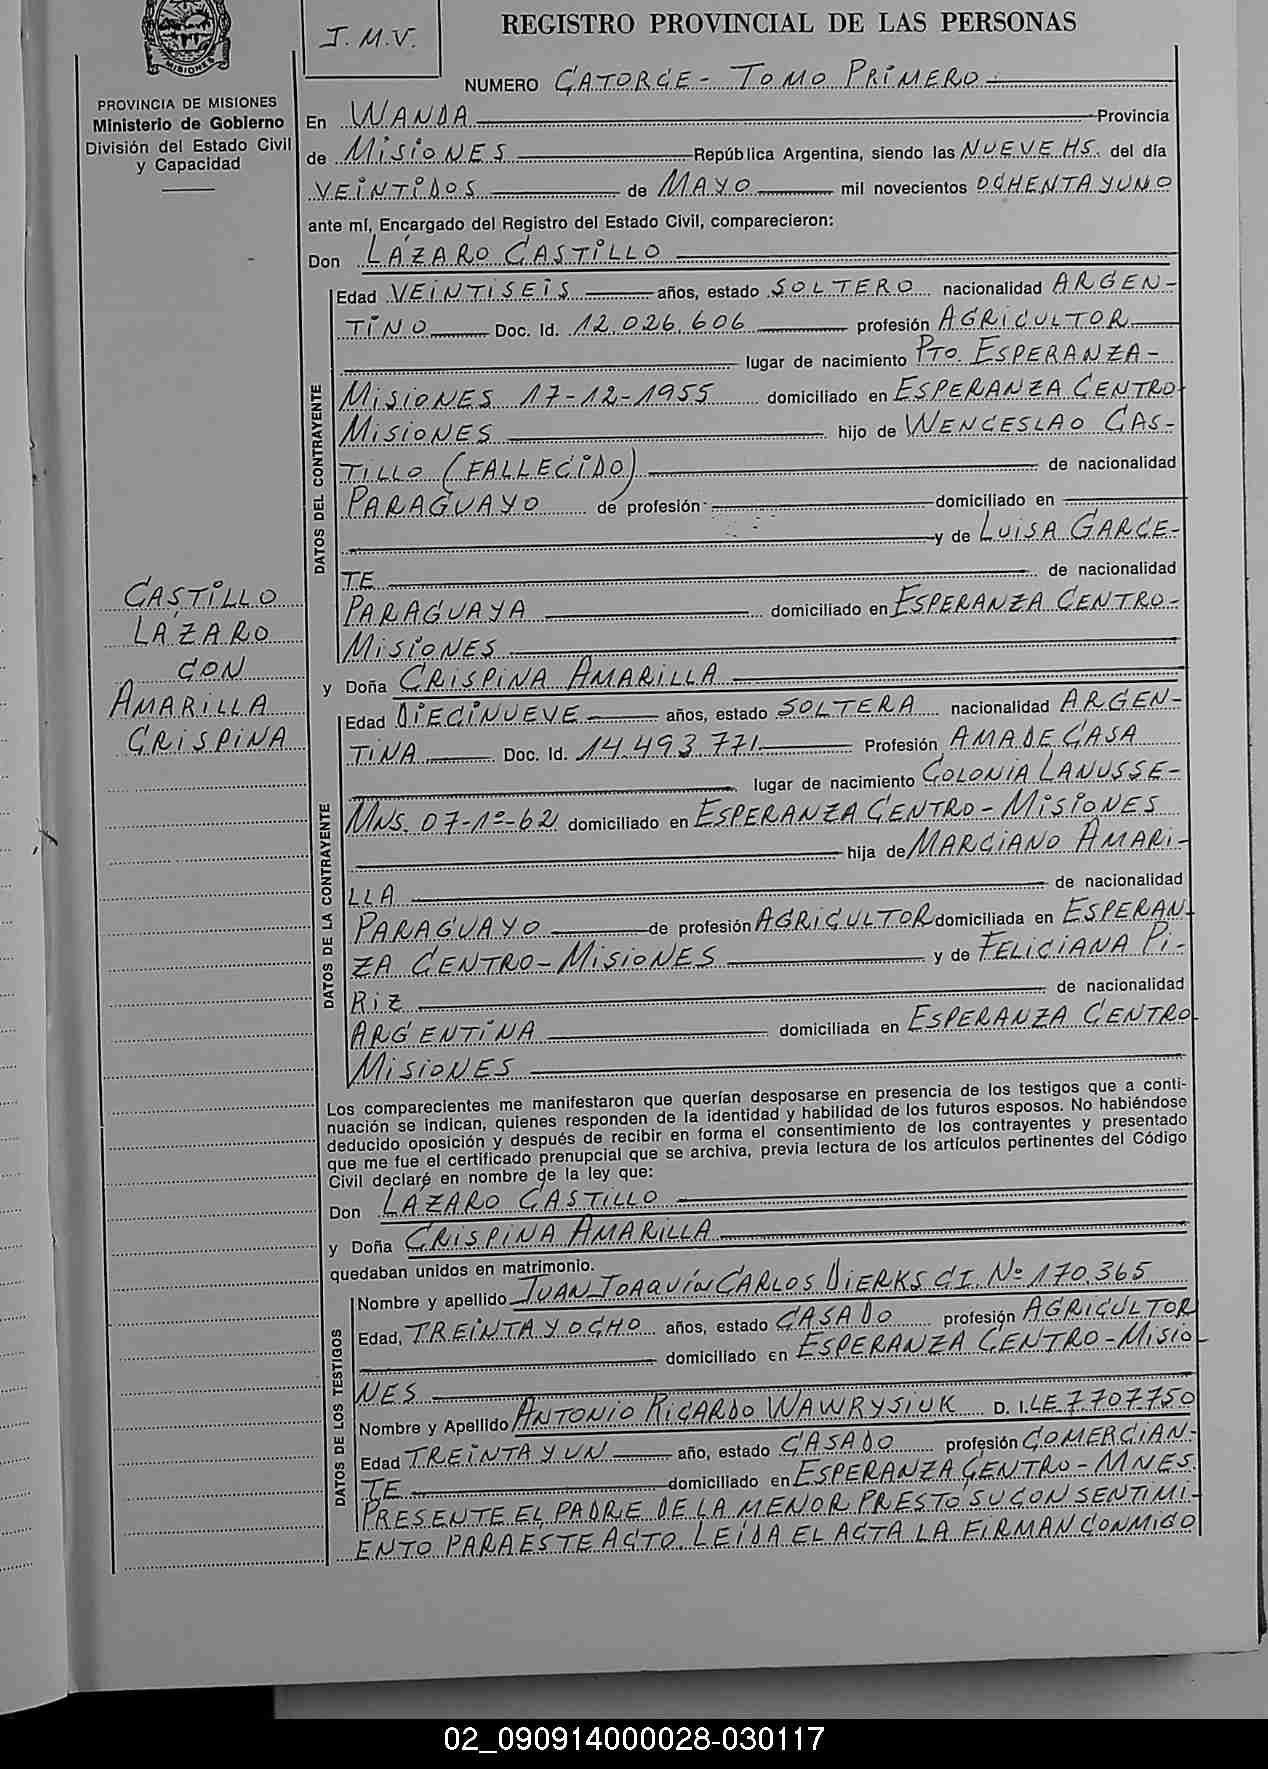 MISIONES
J.M.V.
REGISTRO PROVINCIAL DE LAS PERSONAS
NUMERO CATORCE - TOMO PRIMERO.
PROVINCIA DE MISIONES
Ministerio de Gobierno
División del Estado Civil
y Capacidad
En WANDA Provincia
de MISIONES República Argentina, siendo las NUEVE HS. del día
VEINTIDOS de MAYO mil novecientos OCHENTA Y UNO
ante mí, Encargado del Registro del Estado Civil, comparecieron:
Don LÁZARO CASTILLO
DATOS DEL CONTRAYENTE
Edad VEINTISEIS años, estado SOLTERO nacionalidad ARGEN-
TINO Doc. Id. 12.026.606 profesión AGRICULTOR
lugar de nacimiento PTO. ESPERANZA-
MISIONES 17-12-1955 domiciliado en ESPERANZA CENTRO
MISIONES hijo de WENCESLAO CAS-
TILLO (FALLECIDO) de nacionalidad
PARAGUAYO de profesión domiciliado en
y de LUISA GARCE-
TE de nacionalidad
PARAGUAYA domiciliado en ESPERANZA CENTRO-
MISIONES
CASTILLO
LÁZARO
CON
AMARILLA
CRISPINA
y Doña CRISPINA AMARILLA
DATOS DE LA CONTRAYENTE
Edad DIECINUEVE años, estado SOLTERA nacionalidad ARGEN-
TINA Doc. Id. 14.493.771 Profesión AMA DE CASA
lugar de nacimiento COLONIA LANUSSE-
MNS. 07-1º-62 domiciliado en ESPERANZA CENTRO-MISIONES
hija de MARCIANO AMARI-
LLA de nacionalidad
PARAGUAYO de profesión AGRICULTOR domiciliada en ESPERAN-
ZA CENTRO-MISIONES y de FELICIANA PI-
RIZ de nacionalidad
ARGENTINA domiciliada en ESPERANZA CENTRO
MISIONES
Los comparecientes me manifestaron que querían desposarse en presencia de los testigos que a conti-
nuación se indican, quienes responden de la identidad y habilidad de los futuros esposos. No habiéndose
deducido oposición y después de recibir en forma el consentimiento de los contrayentes y presentado
que me fue el certificado prenupcial que se archiva, previa lectura de los artículos pertinentes del Código
Civil declaré en nombre de la ley que:
Don LAZARO CASTILLO
y Doña CRISPINA AMARILLA
quedaban unidos en matrimonio.
DATOS DE LOS TESTIGOS
Nombre y apellido JUAN JOAQUÍN CARLOS DIERKS C.I. Nº 170.365
Edad, TREINTA Y OCHO años, estado CASADO profesión AGRICULTOR
domiciliado en ESPERANZA CENTRO-MISIO-
NES
Nombre y Apellido ANTONIO RICARDO WAWRYSIUK D. I. LE 7.707.750
Edad TREINTA Y UN año, estado CASADO profesión COMERCIAN-
TE domiciliado en ESPERANZA CENTRO-MNES.
PRESENTE EL PADRE DE LA MENOR PRESTO SU CONSENTIMI-
ENTO PARA ESTE ACTO. LEÍDA EL ACTA LA FIRMAN CONMIGO
02_090914000028-030117